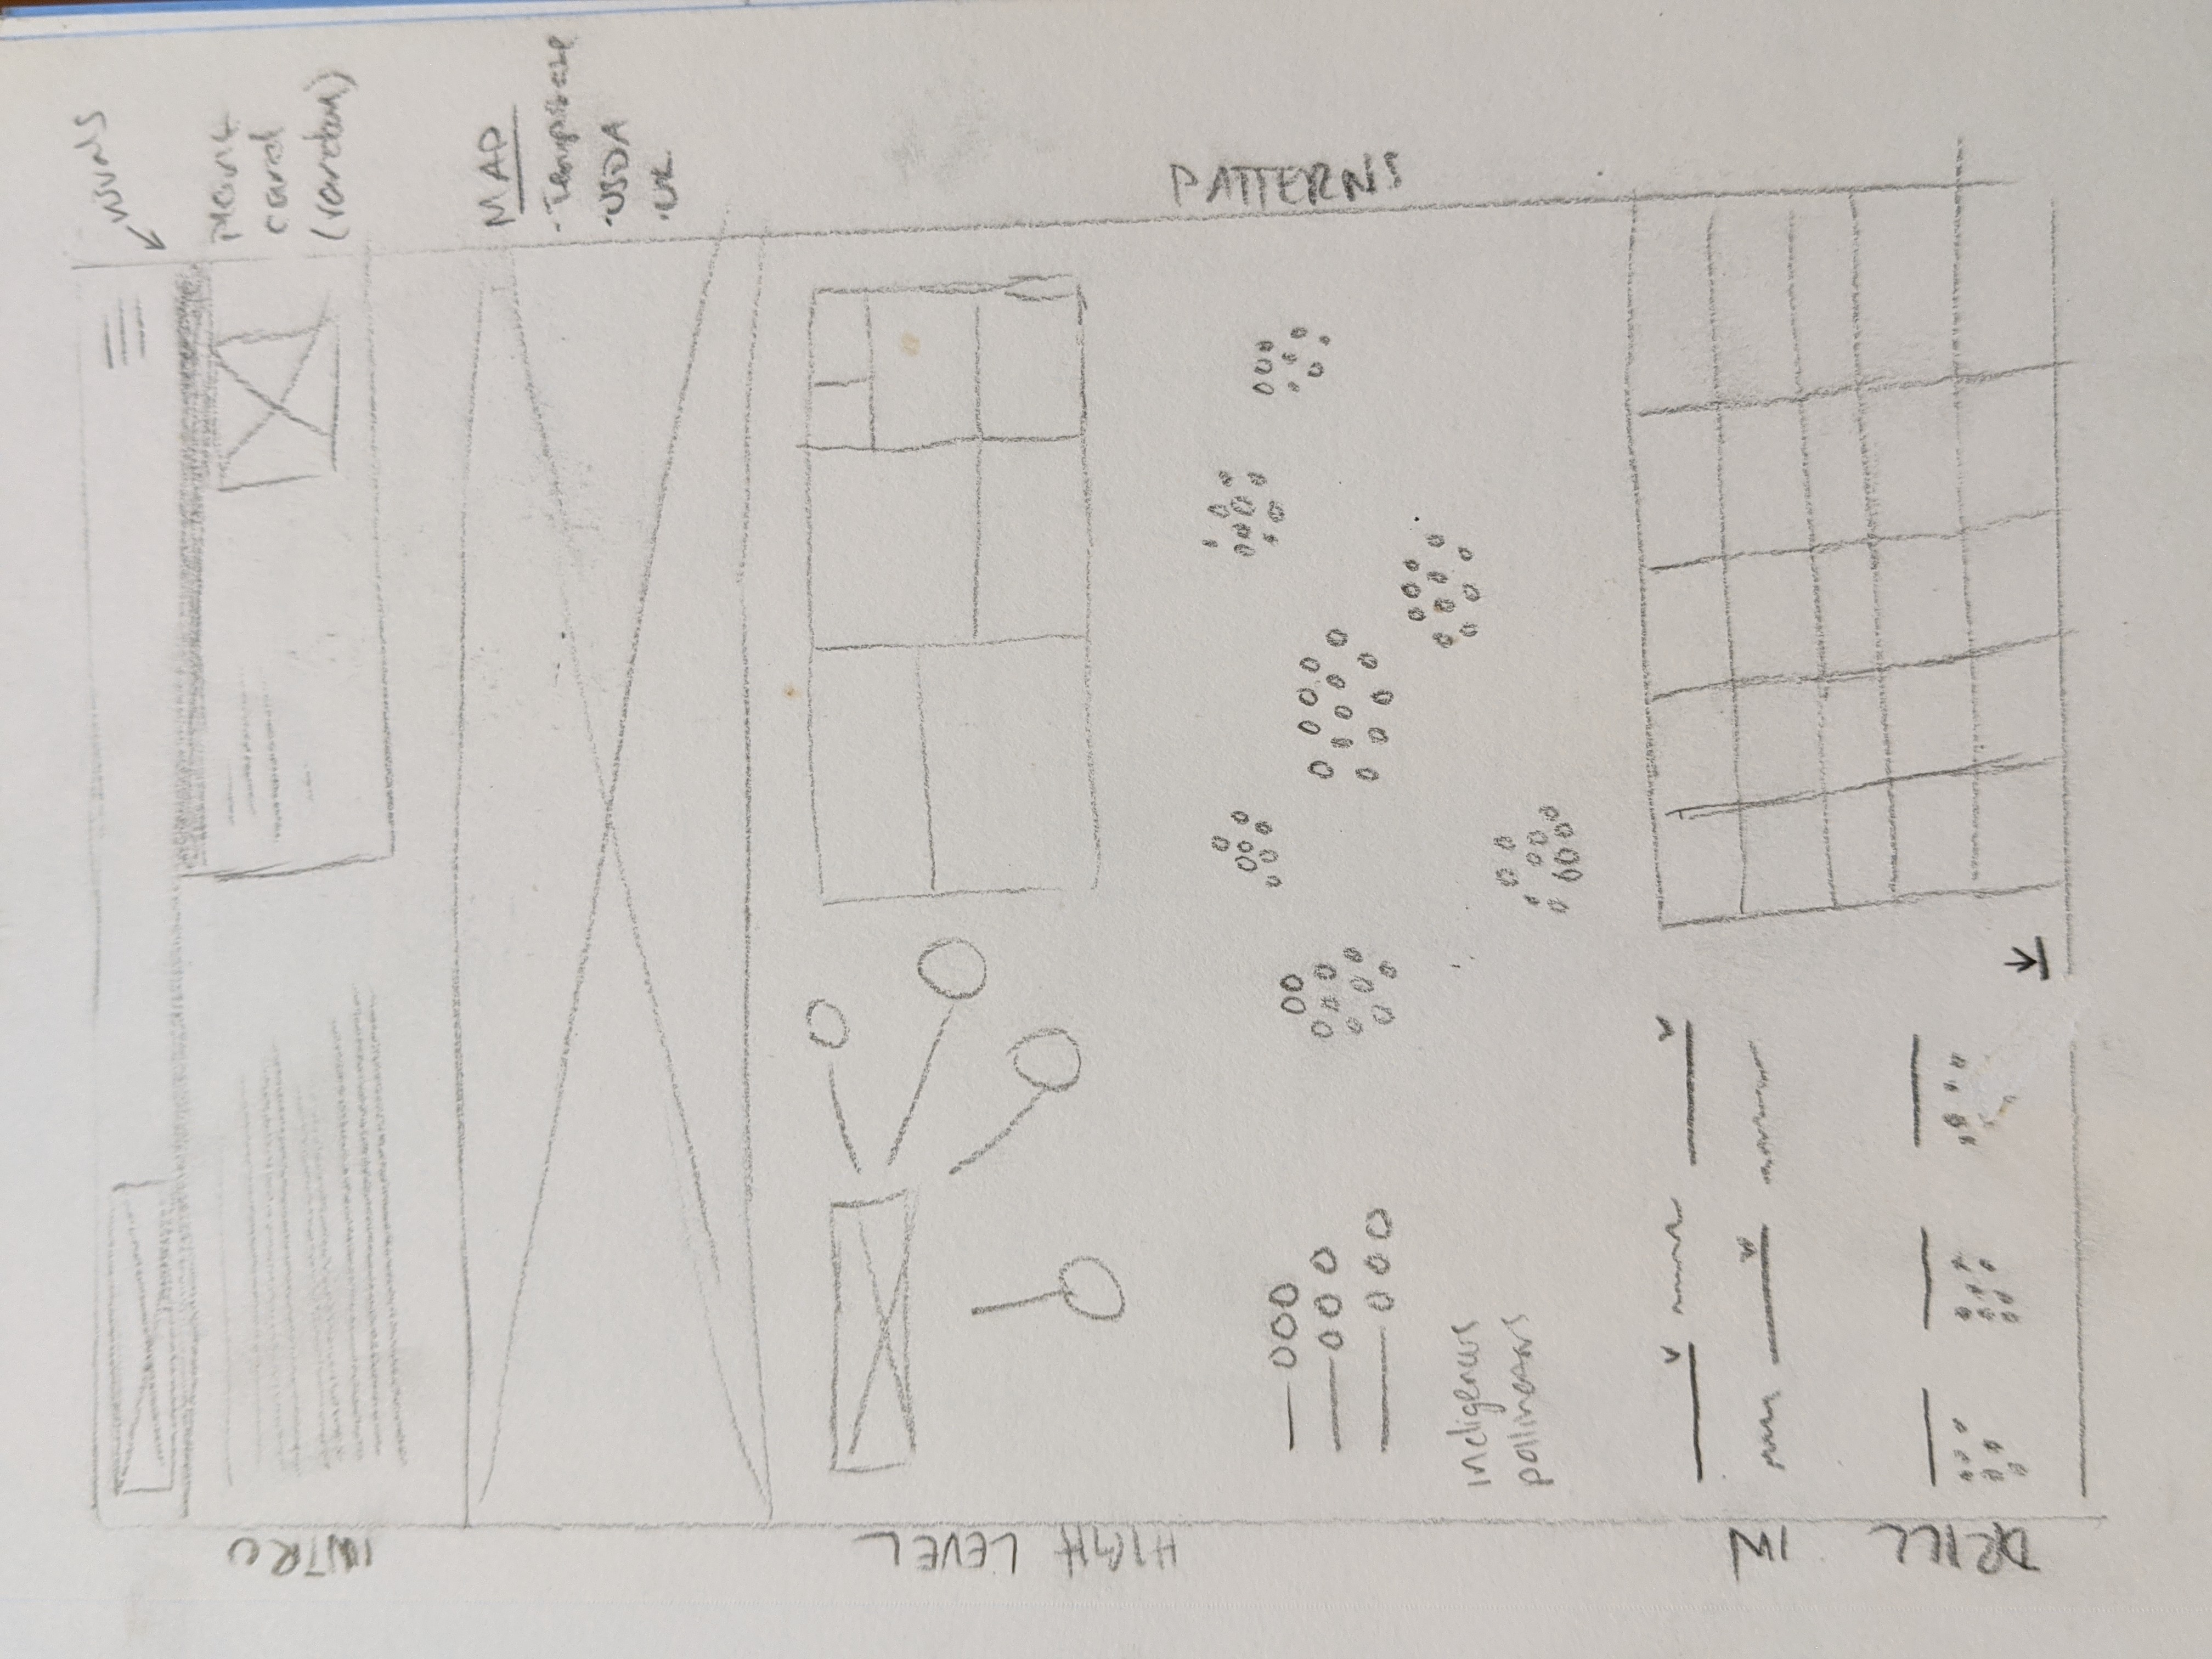 visuals
INTRO
plant
card
(random)
MAP
- Temperate
- USDA
- UK
HIGH LEVEL
PATTERNS
indigenous
pollinators
DRILL IN